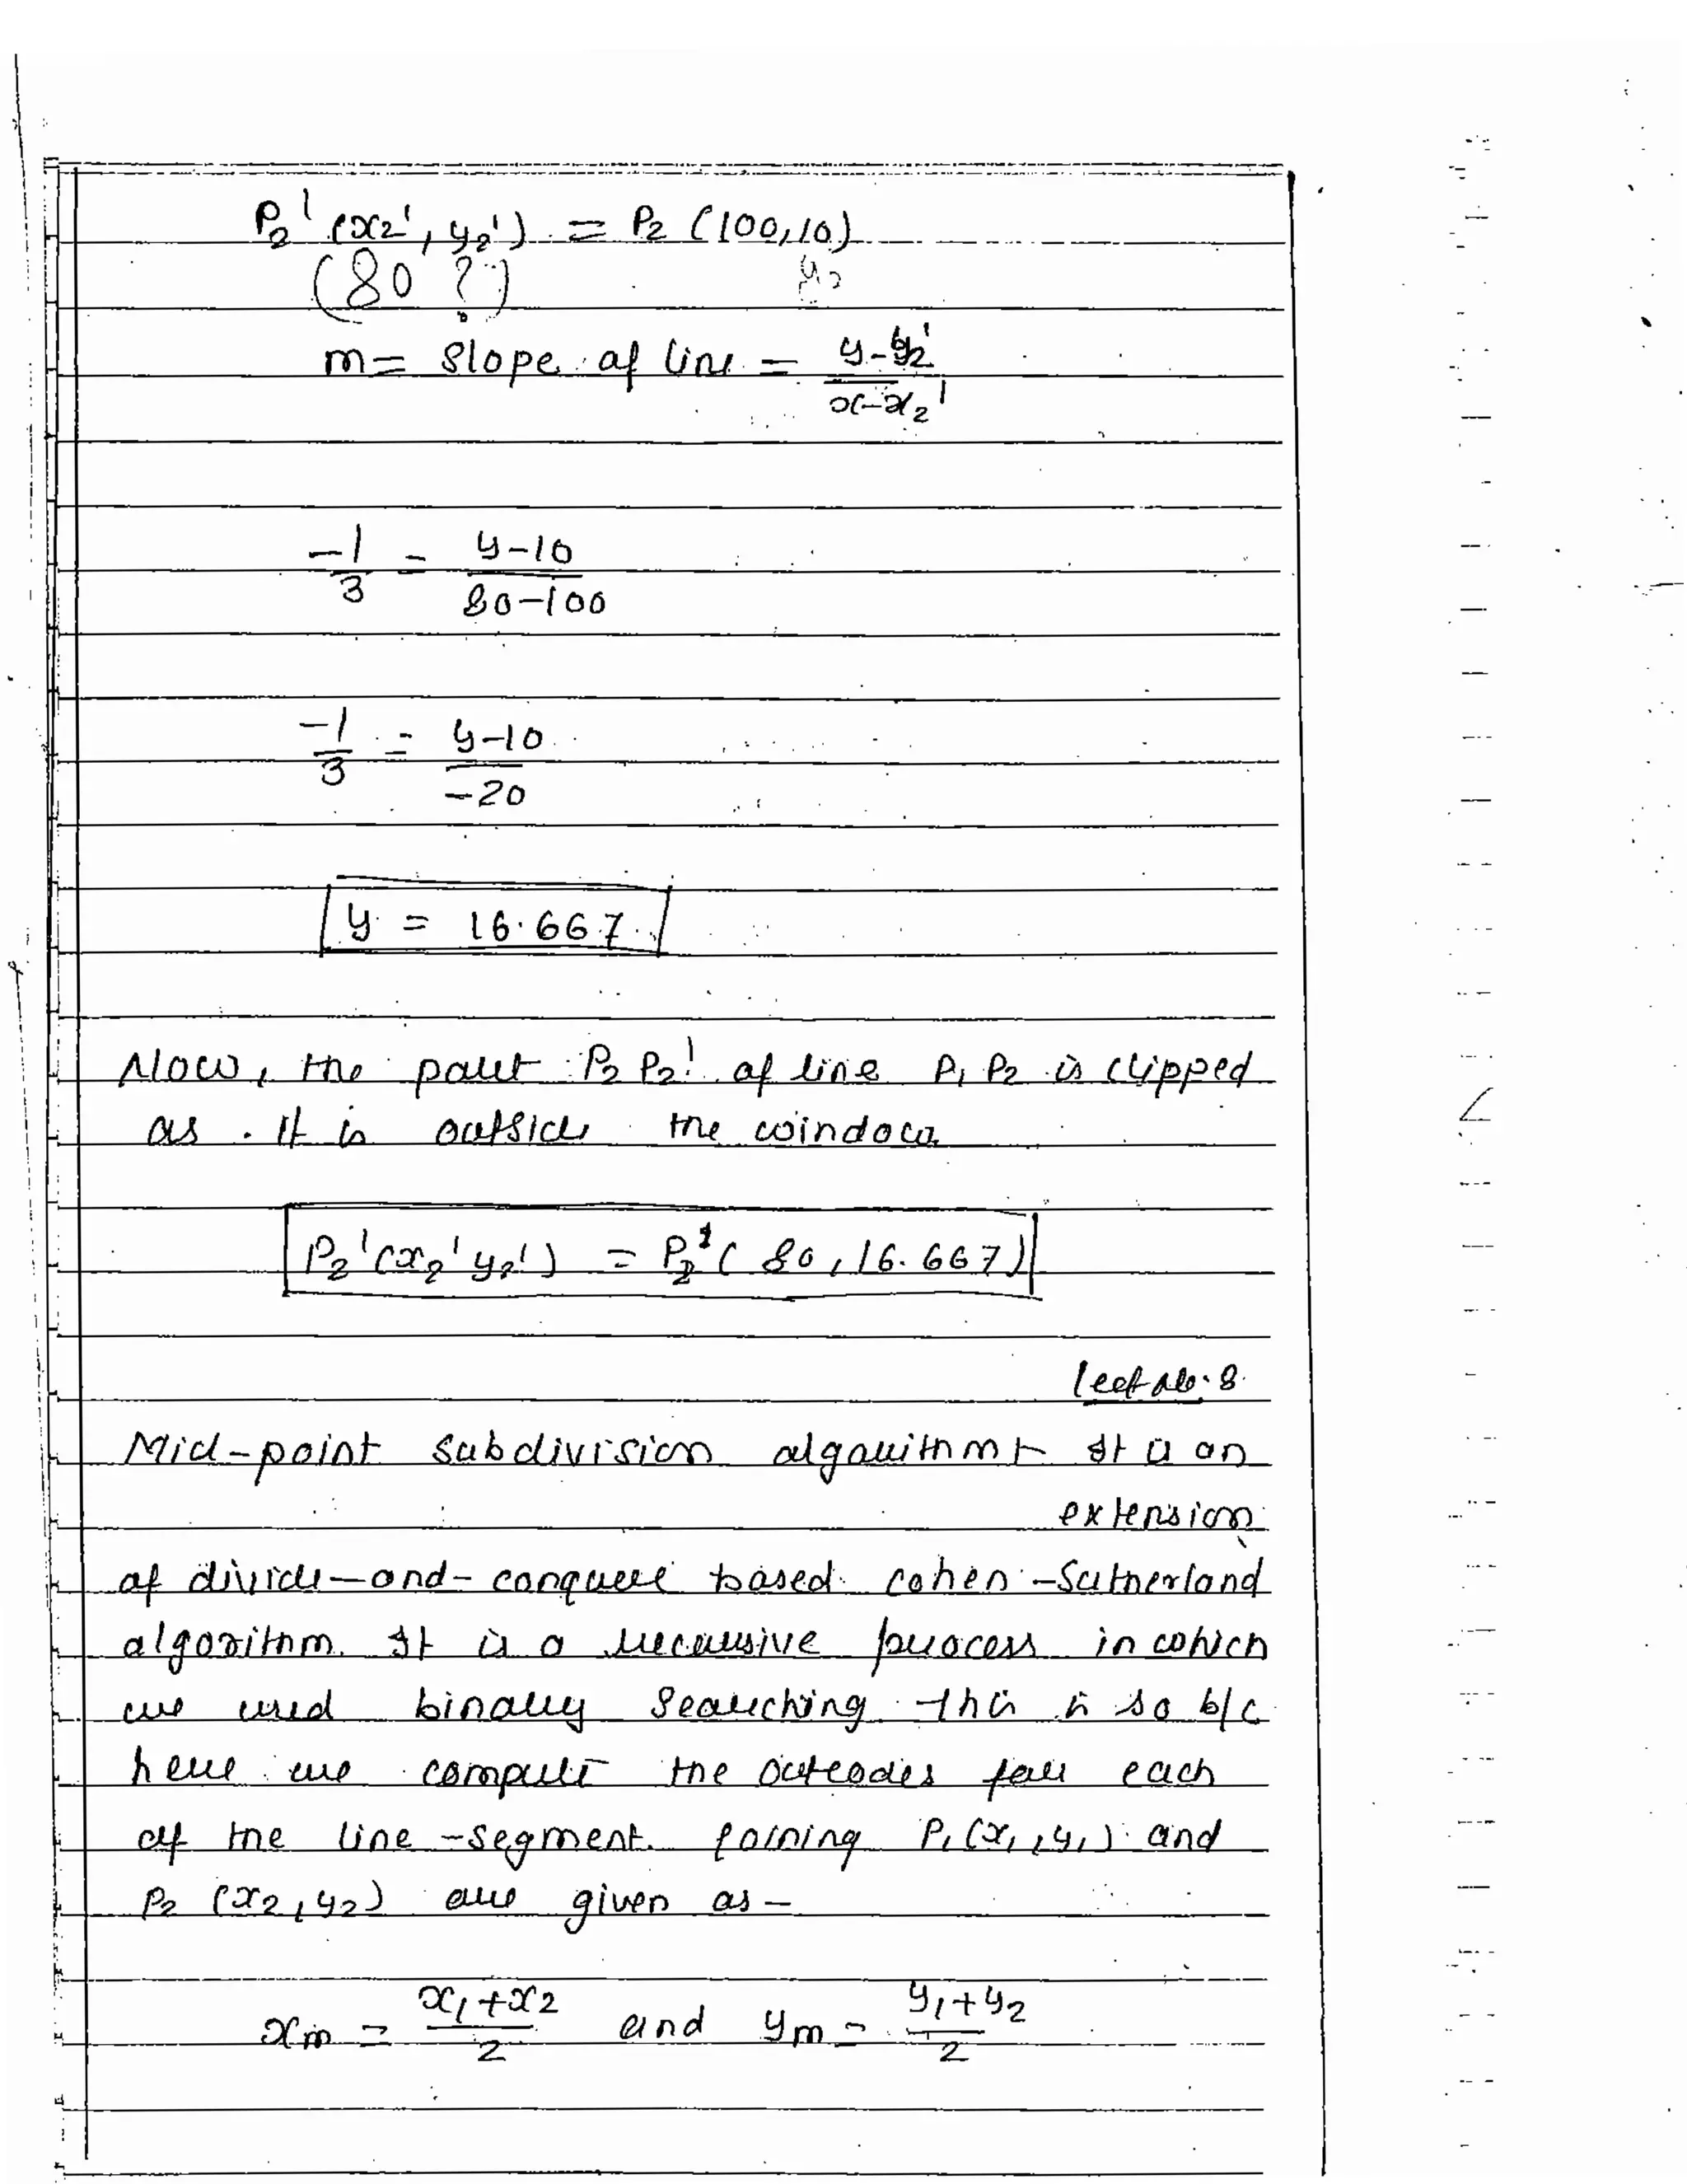 P2' (x2', y2') = P2 (100,10)
(80 ?)
y2
m = slope of line = y-y2' / x-x2'
-1/3 = y-10 / 80-100
-1/3 = y-10 / -20
y = 16.667
Now, the part P2 P2' of line P1 P2 is clipped
as it is outside the window
P2' (x2' y2') = P2' (80, 16.667)
lect no. 8
Mid-point subdivision algorithm :- It is an
extension
of divide-and-conquere based cohen-Sutherland
algorithm. It is a recursive process in which
we used binary searching this is so b/c
here we compute the outcodes for each
of the line-segment. joining P1 (x1, y1) and
P2 (x2, y2) are given as -
xm = x1+x2 / 2 and ym = y1+y2 / 2